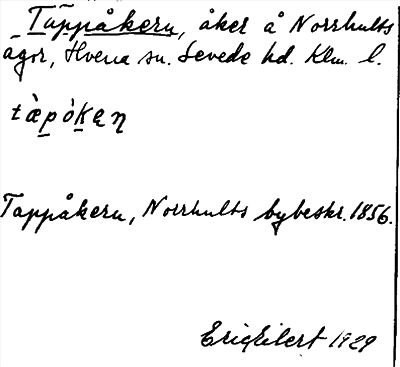 Tappåkern, åker å Norrhults
ägor, Hvena sn. Sevede hd. Klm. l.
tàpòkęn
Tappåkern, Norrhults bybeskr. 1856.
Eric Eilert 1929